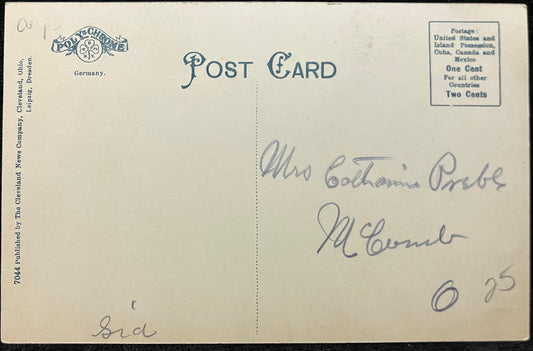 POLY-CHROME
Germany.
7044 Published by The Cleveland News Company, Cleveland, Ohio.
Leipzig, Dresden.
POST CARD
Postage:
United States and
Island Possession,
Cuba, Canada and
Mexico
One Cent
For all other
Countries
Two Cents
Mrs Catharine Preble
McComb
O 25
Sid